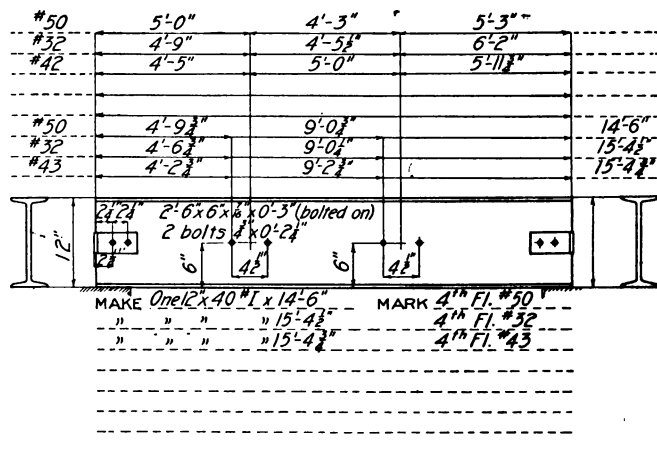 #50 5'-0" 4'-3" 5'-3"
#32 4'-9" 4'-5½" 6'-2"
#42 4'-5" 5'-0" 5'-11¾"
#50 4'-9¾" 9'-0¾" 14'-6"
#32 4'-6¾" 9'-0¼" 15'-4½"
#43 4'-2¾" 9'-2¾" 15'-4¾"
2¼" 2¼" 2-6"x6"x 7/16"x0'-3" (bolted on)
2 bolts ¾"x0'-2¼"
12" 6" 4½" 6" 4½"
MAKE One 12"x40 #I x 14'-6" MARK 4th Fl. #50
" " " " 15'-4½" 4th Fl. #32
" " " " 15'-4¾" 4th Fl. #43